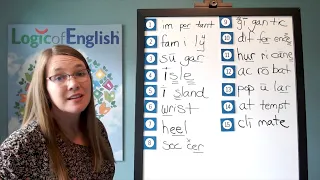 Logic of English
1 im por tant
2 fam i ly
3 su gar
4 isle
5 i sland
6 wrist
7 heel
8 soc cer
9 gi gan tic
10 dif fer ence
11 hur ri cane
12 ac ro bat
13 pop u lar
14 at tempt
15 cli mate